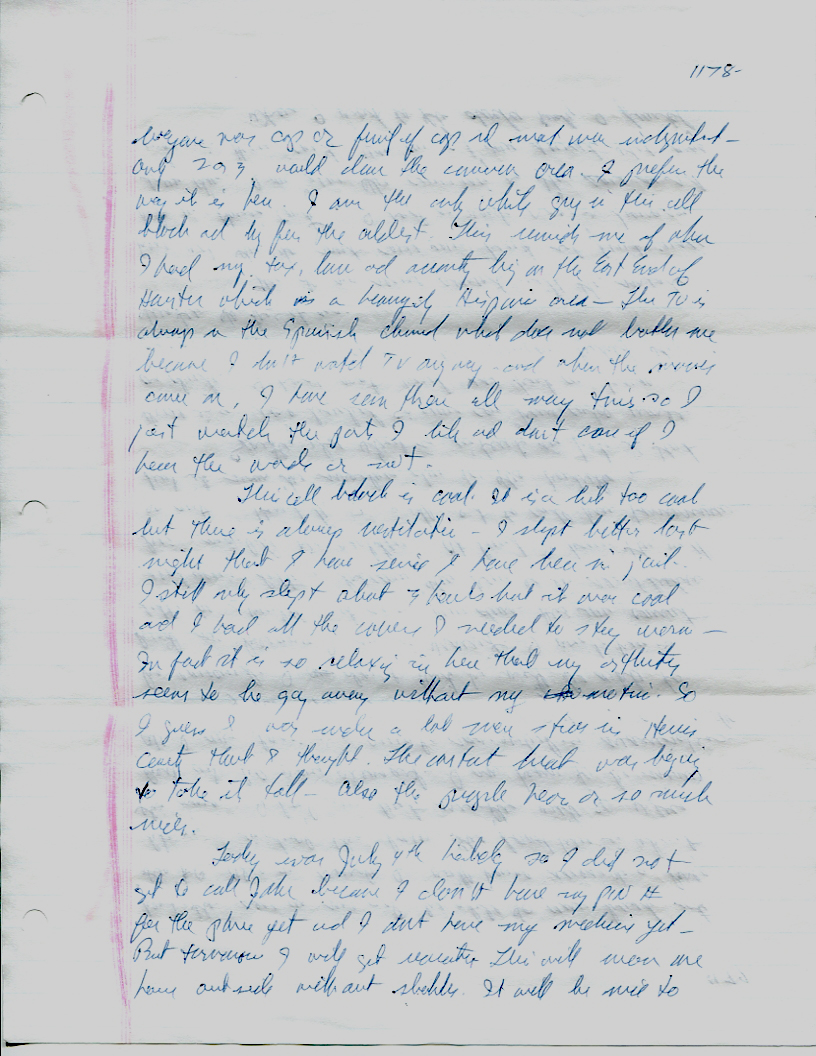 1178-
was cops or friend of cops and most were
only 2 or 3 would clean the common area. I prefer the
way it is here. I am the only white guy in this cell
block and by far the oldest. This reminds me of when
I had my tax, law and on the East End of
Houston which is a Hispanic area — The TV is
always on the Spanish channel what does not bother me
because I don't watch TV anyway - and when the movies
come on, I have seen them all many times so I
just watch the parts I like and don't care if I
hear the words or not.
This cell block is cool. It is a little too cool
but there is always ventilation - I slept better last
night that I have since I have been in jail.
I still only slept about hours but it was cool
and I had all the covers I needed to stay warm —
In fact it is so relaxing in here that my arthritis
seems to be going away without my . So
I guess I was under a lot more stress in Harris
County that I thought. The constant heat was begining
to take it toll - also the people here are so much
nicer.
Today was July 4th holiday so I did not
get to call because I don't have my pin #
for the phone yet and I don't have my medicine yet -
But tomorrow I will get recreation. This will mean one
hour outside without shackles. It will be nice to